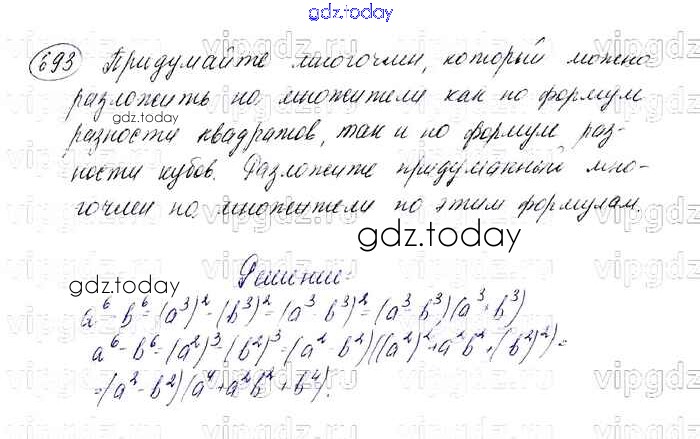 gdz.today
693 Придумайте многочлен, который можно
разложить на множители как по формуле
gdz.today
разности квадратов, так и по формуле раз-
ности кубов. Разложите придуманный мно-
гочлен на множители по этим формулам.
gdz.today
Решение:
gdz.today
a⁶-b⁶=(a³)²-(b³)²=(a³-b³)²=(a³-b³)(a³+b³)
a⁶-b⁶=(a²)³-(b²)³=(a²-b²)((a²)²+a²b²+(b²)²)=
=(a²-b²)(a⁴+a²b²+b⁴).